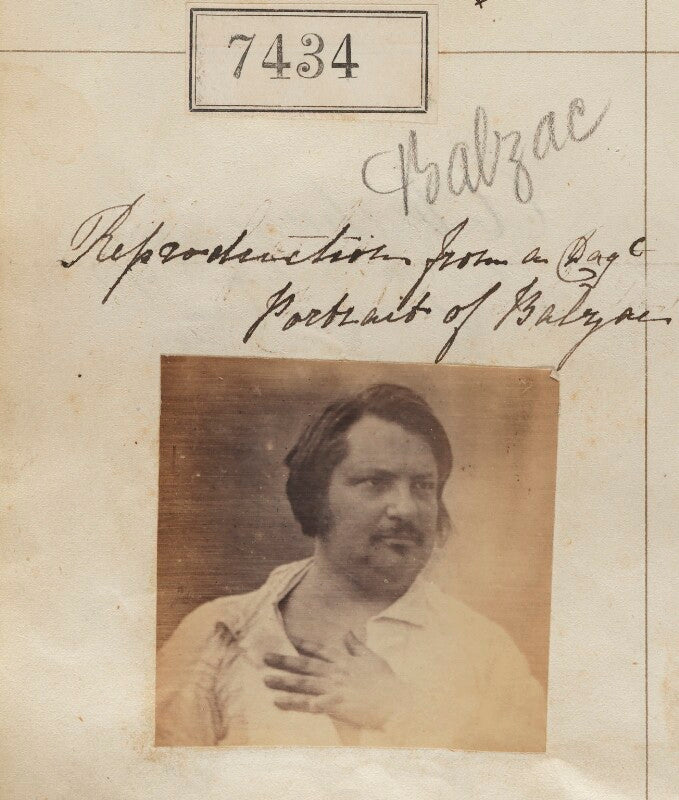 7434
Balzac
Reproduction from a Dagᵉ
Portrait of Balzac